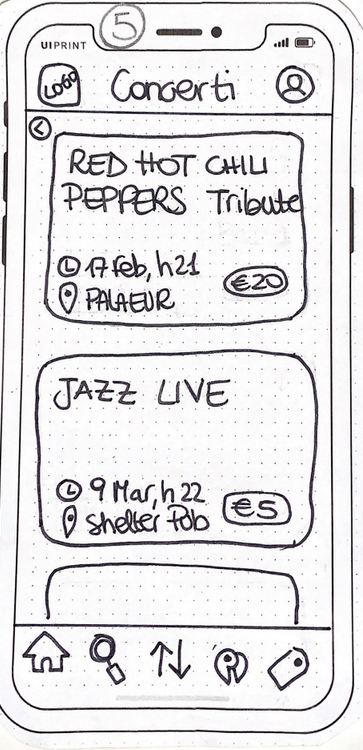 5
UIPRINT
LOGO
Concerti
RED HOT CHILI
PEPPERS Tribute
17 Feb, h21
PALAEUR
€20
JAZZ LIVE
9 Mar, h 22
Shelter Pub
€5